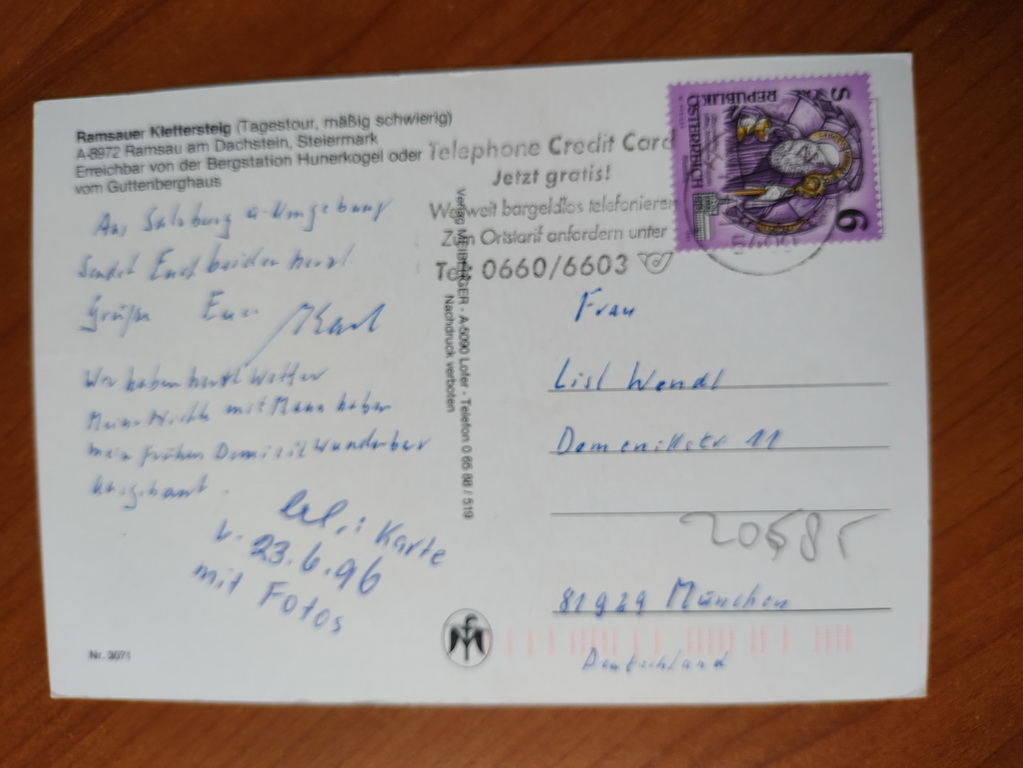 Ramsauer Klettersteig (Tagestour, mäßig schwierig)
A-8972 Ramsau am Dachstein, Steiermark
Erreichbar von der Bergstation Hunerkogel oder
vom Guttenberghaus
Telephone Credit Card
Jetzt gratis!
Weltweit bargeldlos telefonieren
Zum Ortstarif anfordern unter
Tel. 0660/6603
REPUBLIK
ÖSTERREICH
S 6
Aus Salzburg u. Umgebung
Sendet Euch beiden herzl.
Grüße Euer Karl
Wir haben herrl Wetter
Meine Nichte mit Mann haben
mein frühen Domizil Wunderbar
ausgebaut.
erl.: Karte
v. 23.6.96
mit Fotos
Nr. 3071
Verlag MEIBERGER - A-5090 Lofer - Telefon 0 65 88 / 519
Nachdruck verboten
Frau
Lisl Wendl
11
81929 München
Deutschland